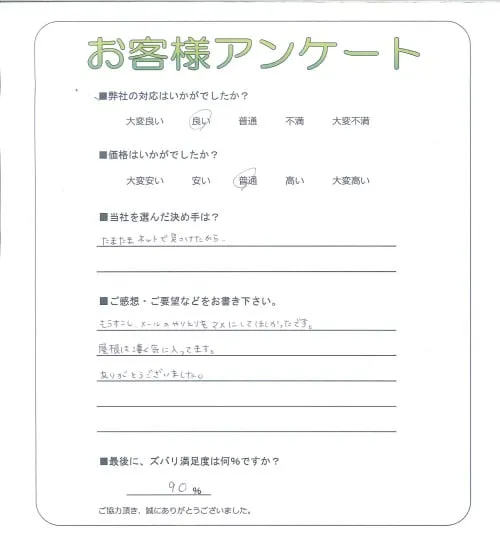 お客様アンケート
■弊社の対応はいかがでしたか？
大変良い 良い 普通 不満 大変不満
■価格はいかがでしたか？
大変安い 安い 普通 高い 大変高い
■当社を選んだ決め手は？
たまたまネットで見つけたから
■ご感想・ご要望などをお書き下さい。
もう少し、メールのやりとりをマメにしてほしかったです。
屋根は凄く気に入ってます。
ありがとうございました。
■最後に、ズバリ満足度は何％ですか？
90 %
ご協力頂き、誠にありがとうございました。